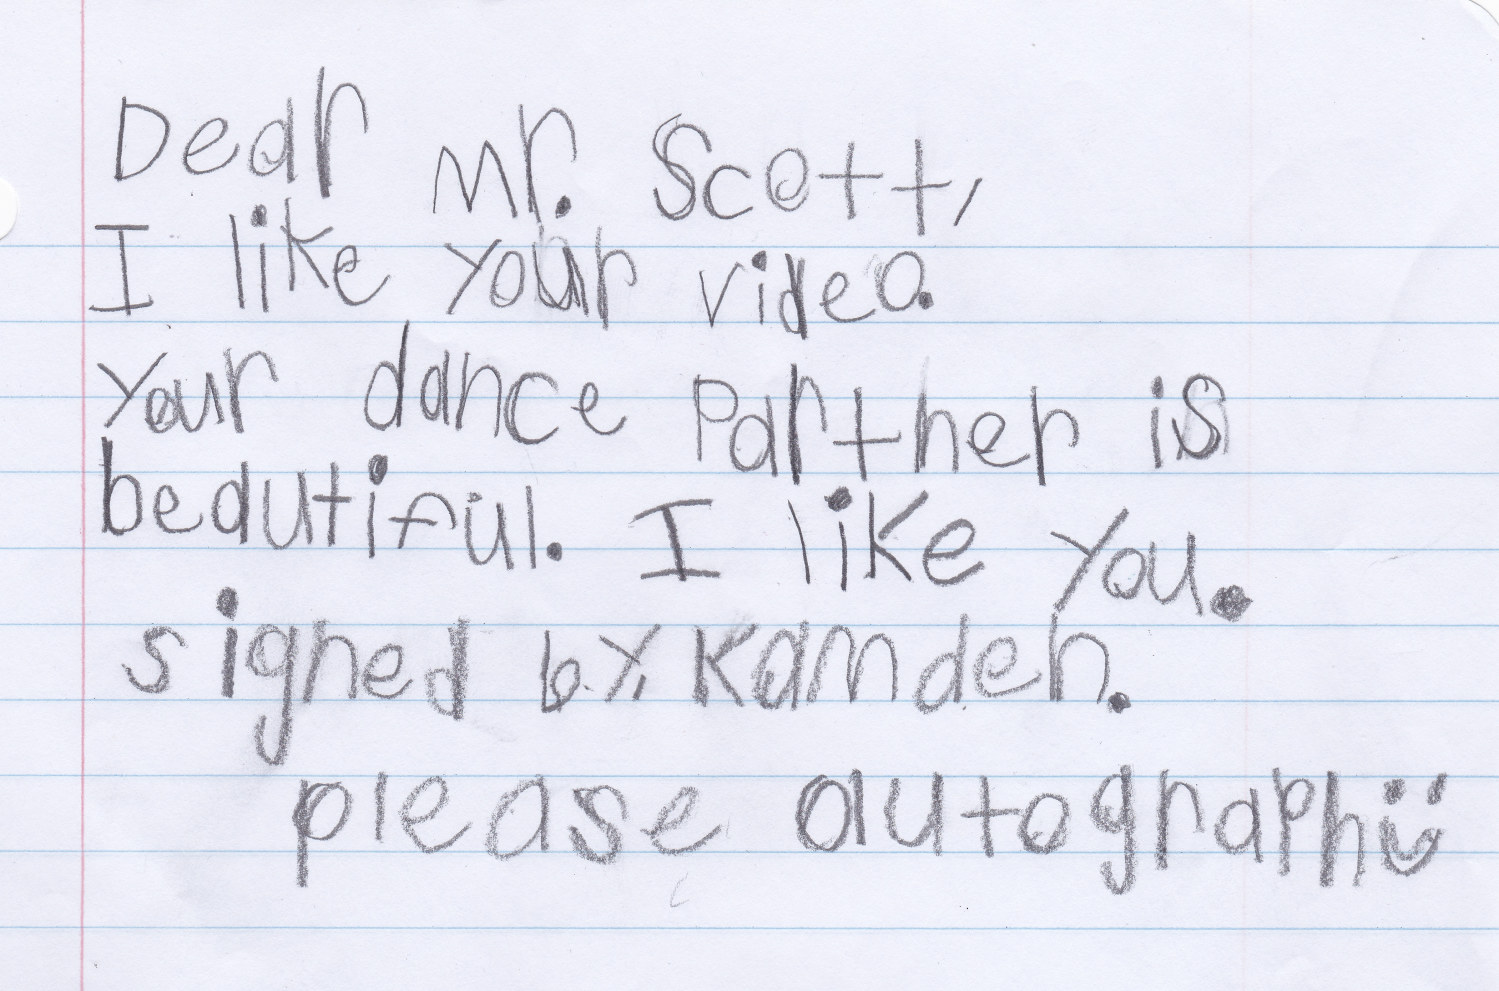 Dear Mr. Scott,
I like your video.
Your dance Partner is
beautiful. I like you.
signed by, Kamden.
please autograph